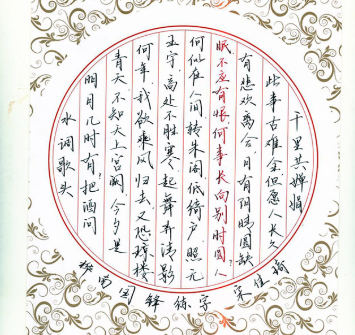 水调歌头
明月几时有？把酒问
青天 不知天上宫阙 今夕是
何年 我欲乘风归去又恐琼楼
玉宇 高处不胜寒 起舞弄清影
何似在人间 转朱阁 低绮户 照无
眠不应有恨何事长向别时圆人
有悲欢离合月有阴晴圆缺
此事古难全但愿人长久
千里共婵娟
南国 锋 练字 宋佳